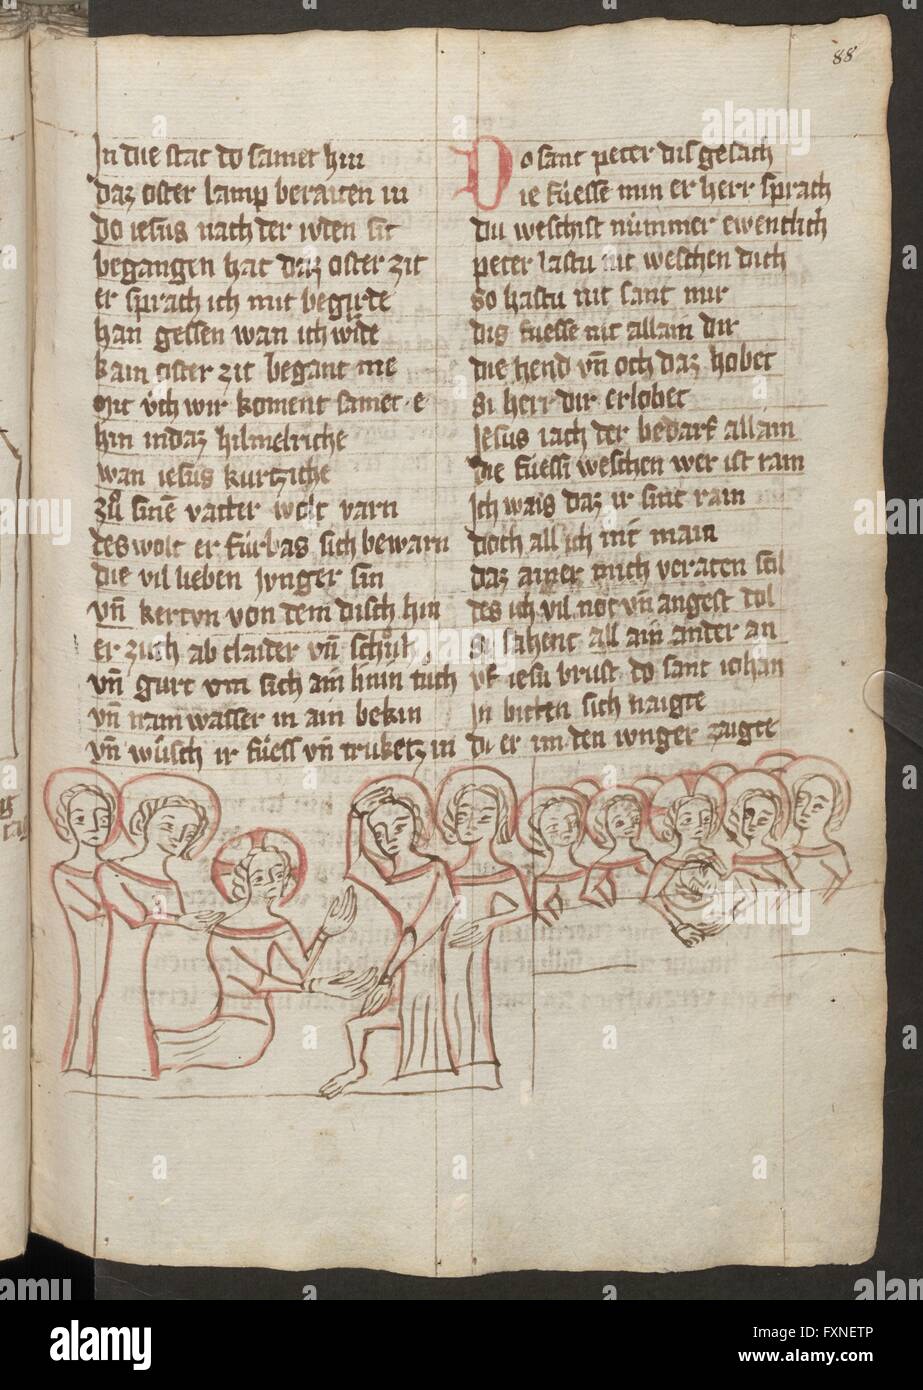 88
In die stat do samet hin
daz oster lamp beraiten in
Do iesus nach der iuden sit
begangen hat daz oster zit
er sprach ich mit begirde
han gessen wan ich wirde
kain oster zit begant me
Mit üch wir koment samet e
hin in daz hilmelriche
wan iesus kurtzliche
zů sinē vatter wolt varn
des wolt er fürbas sich bewarn
die vil lieben jvnger sin
vn̄ kertvn von dem disch hin
er zuch ab claider vn̄ schůh
vn̄ gurt vm sich ain linin tůch
vn̄ nam wasser in ain bekin
vn̄ wůsch ir füess vn̄ truketz in
Do sant peter dis gesach
die füesse min er herr sprach
du weschist nümmer ewenclich
peter lastu nit weschen dich
so hastu nit sant mir
dis fuesse nit allain dir
die hend vn̄ och daz hobet
si herr dir erlobet
Jesus iach der bedarf allain
die füessi weschen wer ist rain
Ich wais daz ir sint rain
doch all ich int̄ main
daz ainer mich veraten sol
des ich vil not vn̄ angest dol
si sahent all ain ander an
vf iesu brust do sant iohan
In bitten sich naigte
di er im den ivnger zaigte
alamy
Image ID: FXNETP
www.alamy.com